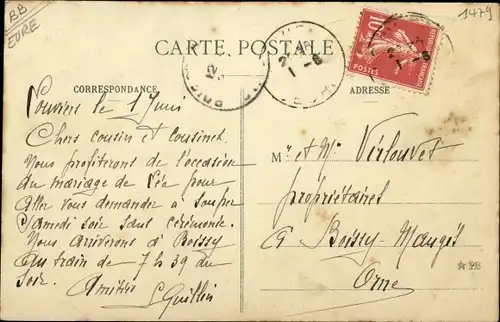 BB
EURE
1479
CARTE POSTALE
10
POSTES
CORRESPONDANCE
ADRESSE
Louviers le 1 Juin
Chers cousin et cousines
Nous profiterons de l'occasion
du mariage de Léa pour
aller vous demander à souper
Samedi soir sans cérémonie.
Nous arriverons à Boissy
au train de 7 h 39 du
soir.
Amitiés
Mr et Me Virlouvet
propriétaires
à Boissy-Maugis
Orne